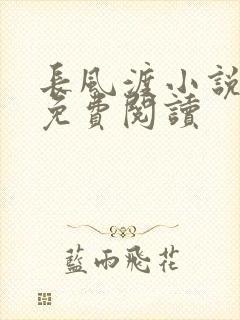 長風渡小説
免費閱讀
藍雨飛花